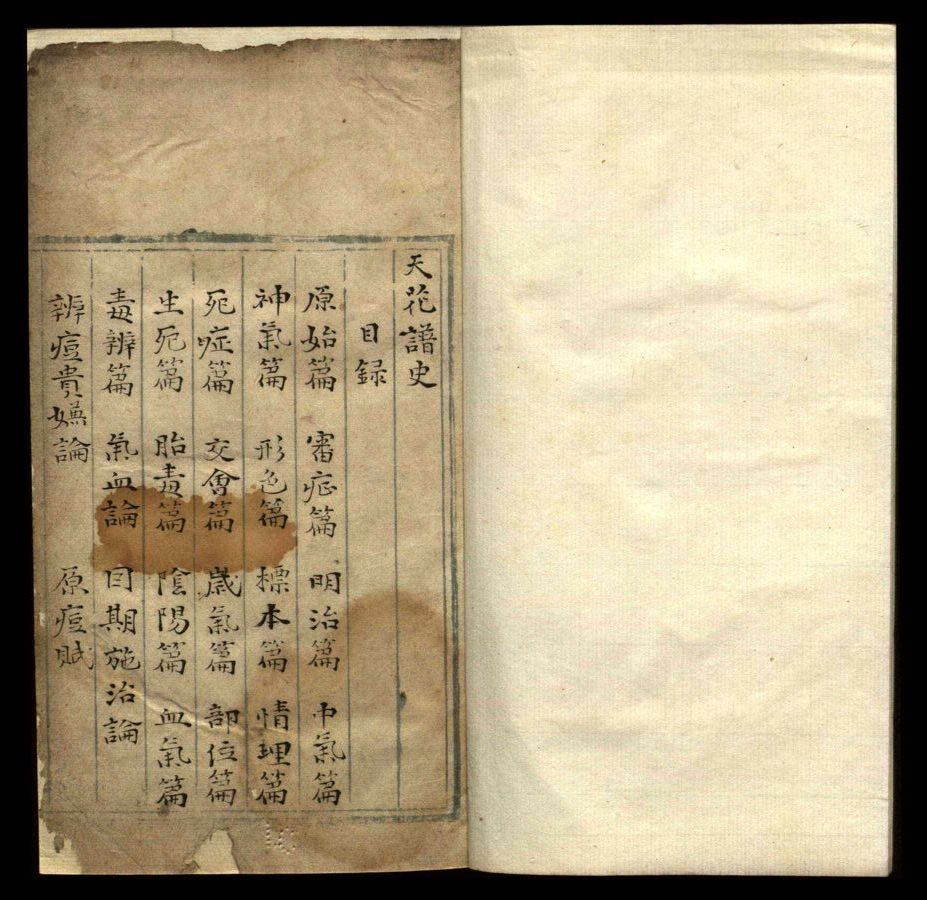 天花譜史
目録
原始篇 審症篇 明治篇 中氣篇
神氣篇 形色篇 標本篇 情理篇
死症篇 交會篇 歲氣篇 部位篇
生死篇 胎毒篇 陰陽篇 血氣篇
毒辨篇 氣血論 因期施治論
辨痘貴嫌論 原痘賦